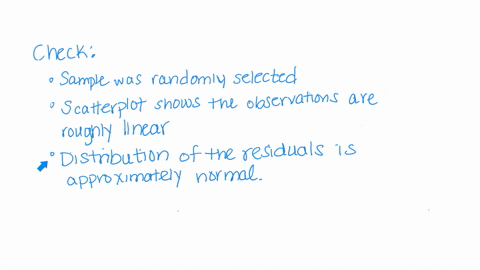 Check:
• Sample was randomly selected
• Scatterplot shows the observations are
roughly linear
• Distribution of the residuals is
approximately normal.